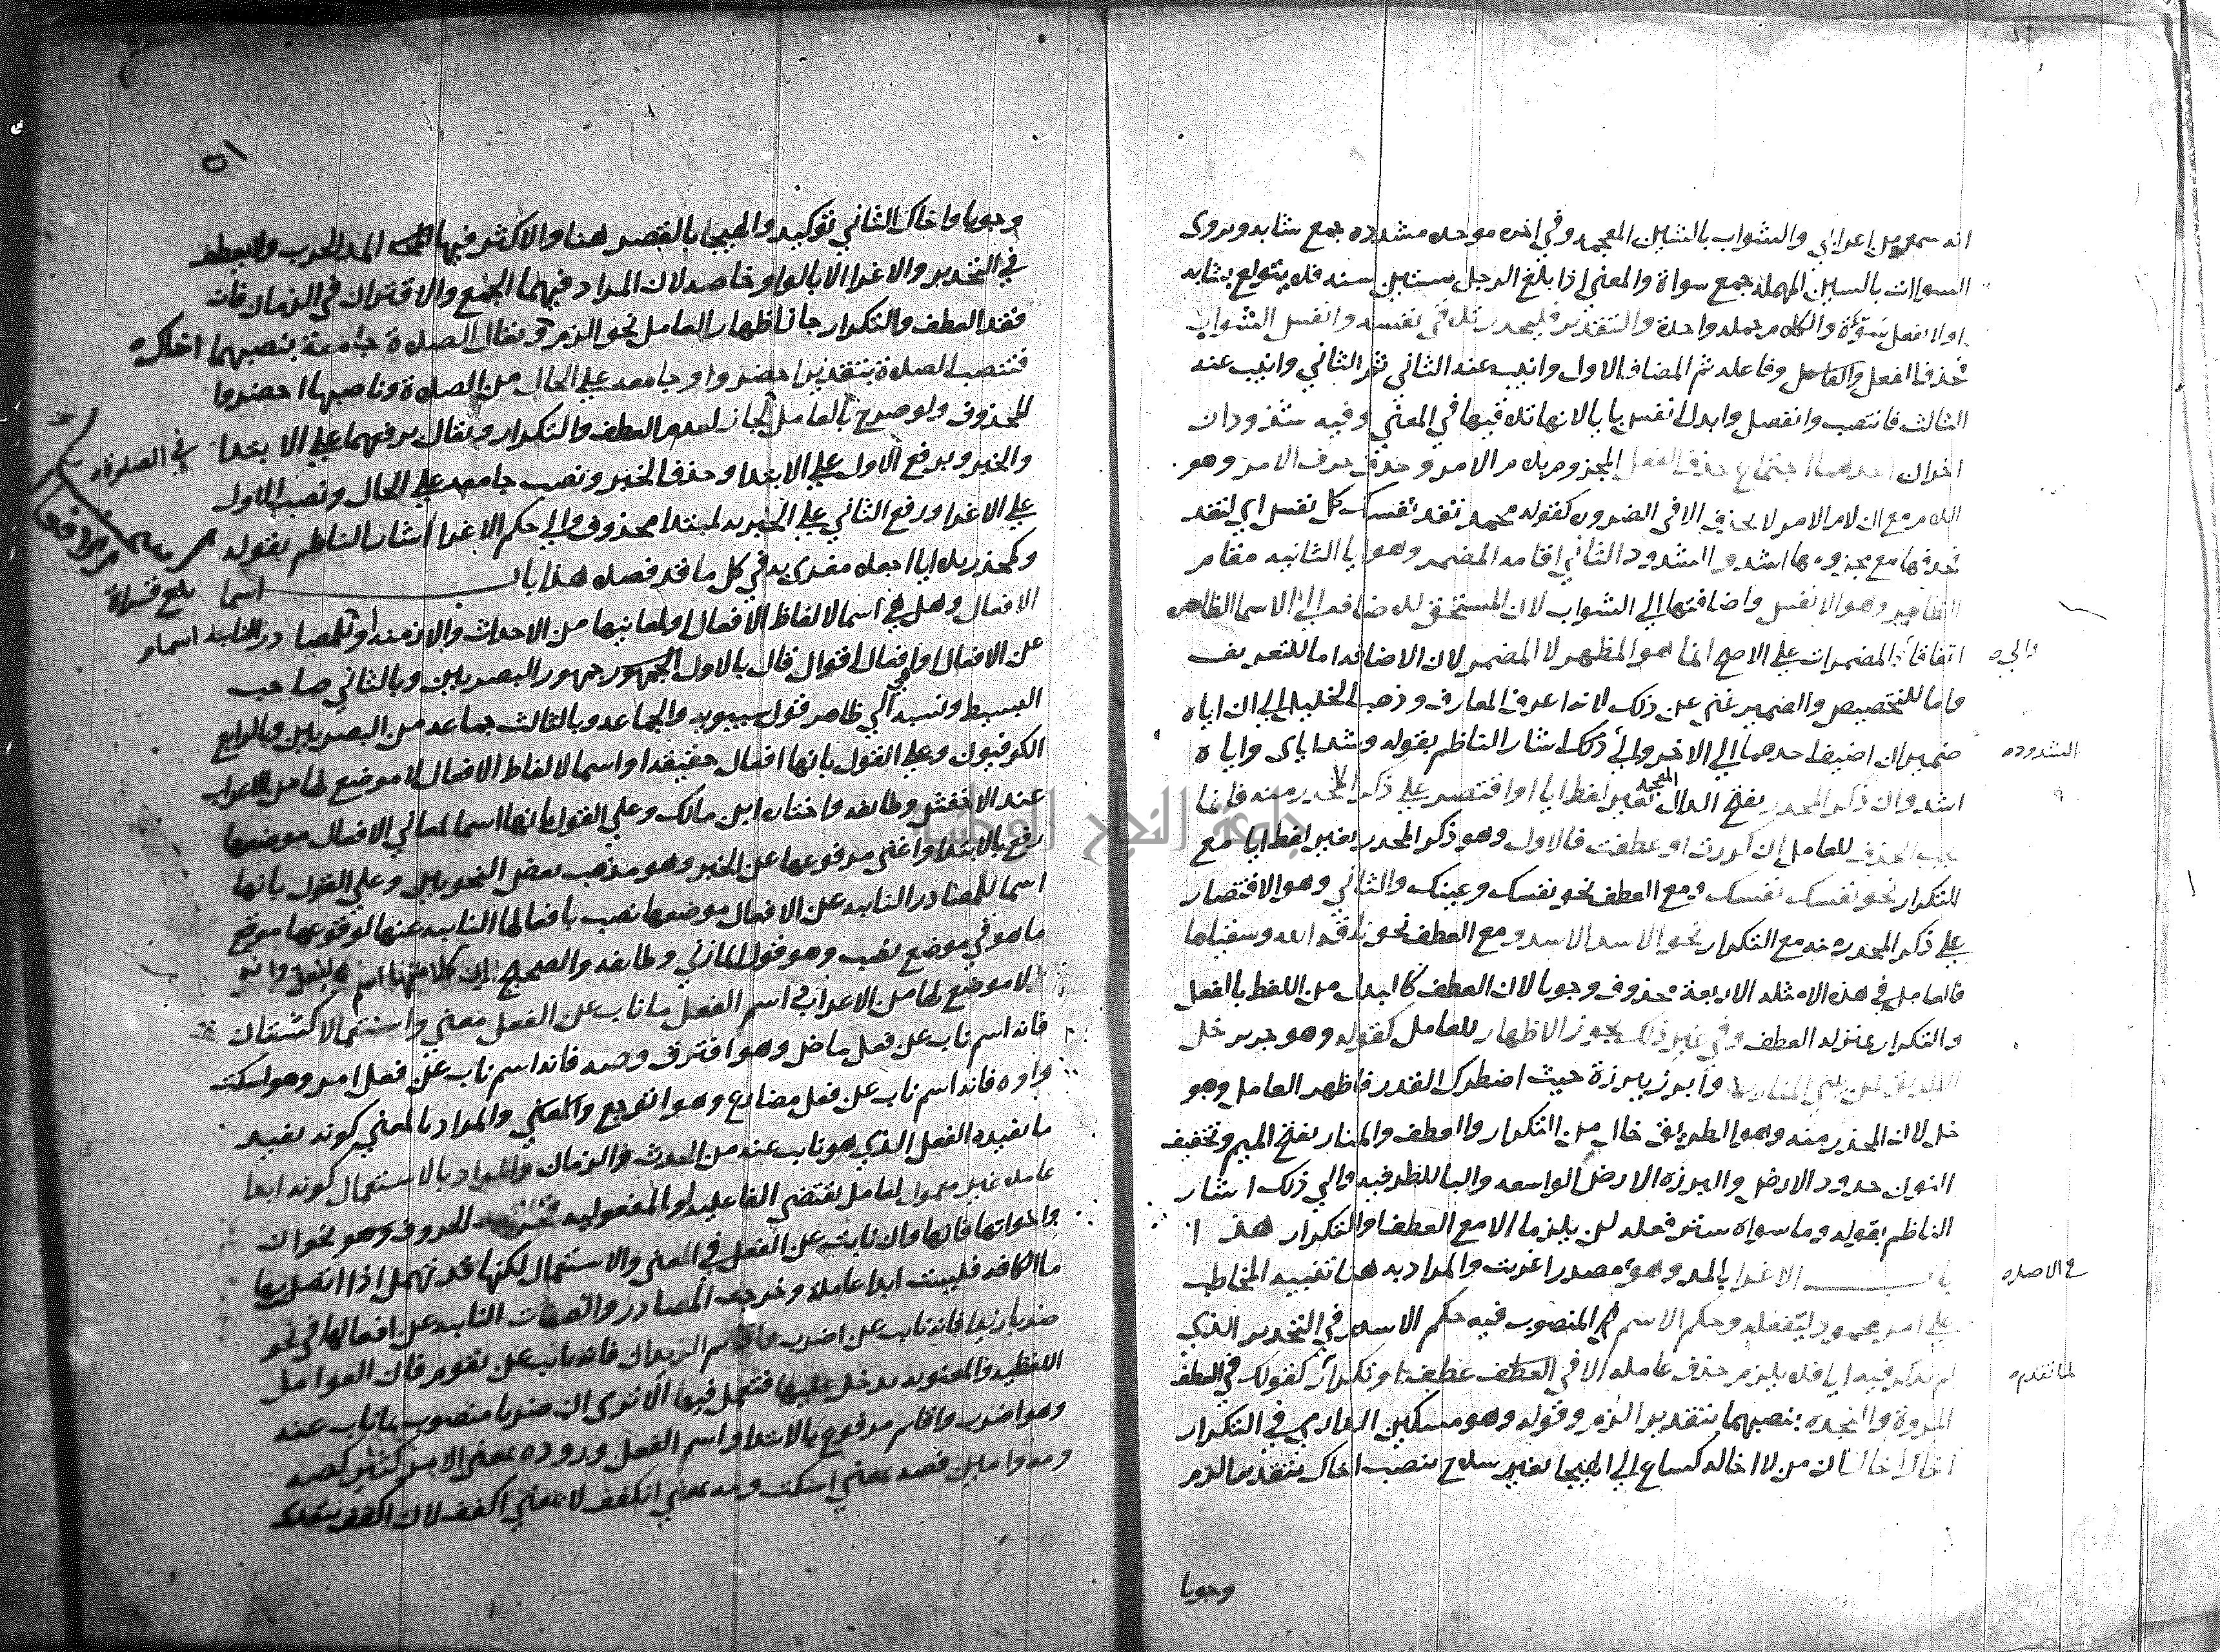 انه سمع من اعرابي والشواب بالشين المعجمه وفي اخره موحده مشدده جمع شابه ويروى
السوات بالسين المهمله جمع سواة والمعنى اذا بلغ الرجل ستين سنه فلا يتولع بشابه
اولا يفعل سوءة والكلام جمله واحدة والتقدير فليحذر تلاقي نفسه وانفس الشواب
فحذف الفعل والفاعل وفاعله ثم المضاف الاول وانيب عنه الثاني ثم الثاني وانيب عنه
الثالث فانتصب وانفصل وابدل انفس بايا لانها تلاقيها في المعنى وفيه شذوذان
اخران احدهما اجتماع حذف الفعل المجزوم بلام الامر وحذف حرف الامر وهو
اللام مع ان لام الامر لا يحذف الا في الضروره كقوله محمد تفد نفسك كل نفس اي لتفد
فحذفها مع مجزومها اشد والشذوذ الثاني اقامه المضمر وهو ايا الثانيه مقام
الظاهر وهو الانفس واضافتها الى الشواب لان المستحق للاضافه الى الاسما الظاهره
اتفاقا المضمرات على الاصح انما هو المظهر لا المضمر لان الاضافه اما للتعريف
والي
واما للتخصيص والضمير غني عن ذلك لانه اعرف المعارف وذهب الخليل الى ان اياه
ضميران اضيف احدهما الى الاخر والى ذلك اشار الناظم بقوله وشذ اياي واياه
الشذوذ
اشد وان ذكر المحذر بفتح الدال المعجمه بغير لفظ ايا او اقتصر على ذكر المحذر منه فانما
يجب الحذف للعامل ان كررت او عطفت فالاول وهو ذكر المحذر بغير لفظ ايا مع
التكرار نحو نفسك نفسك ومع العطف نحو نفسك وعينك والثاني وهو الاقتصار
على ذكر المحذر منه مع التكرار نحو الاسد الاسد ومع العطف نحو ناقة الله وسقياها
فالعامل في هذه الامثله الاربعة محذوف وجوبا لان العطف كالبدل من اللفظ بالفعل
والتكرار بمنزله العطف وفي غير ذلك يجوز الاظهار للعامل كقوله وهو جرير خل
الطريق لمن يبني المنار به وابرز ببرزة حيث اضطرك القدر فاظهر العامل وهو
خل لان المحذر منه وهو الطريق خال من التكرار والعطف والمنار بفتح الميم وتخفيف
النون حدود الارض والبرزه الارض الواسعه والبا للظرفيه والى ذلك اشار
الناظم بقوله وما سواه ستر فعله لن يلزما الا مع العطف او التكرار هذا
باب الاغرا بالمد وهو مصدر اغريت والمراد به هنا تنبيه المخاطب
في الاصل
على امر محمود ليفعله وحكم الاسم المنصوب فيه حكم الاسم في التحذير الذي
لم يذكر فيه ايا فلا يلزم حذف عامله الا في عطف او تكرار كقولك في العطف
لما تقدم
المروة والنجده بنصبهما بتقدير الزم وقوله وهو مسكين الدارمي في التكرار
اخاك اخاك ان من لا اخا له كساع الى الهيجا بغير سلاح بنصب اخاك بتقدير الزم
وجوبا
٥١
وجوبا واخاك الثاني توكيد والهيجا بالقصر هنا والاكثر فيها المد الحرب ولا يعطف
في التحذير والاغرا الا بالواو خاصه لان المراد فيهما الجمع والاقتران في الزمان فان
فقد العطف والتكرار جاز اظهار العامل نحو الزم ويقال الصلاة جامعة بنصبهما اخاك
فتنصب الصلاة بتقدير احضروا وجامعه على الحال من الصلاة وناصبها احضروا
المحذوف ولو صرح بالعامل لجاز لعدم العطف والتكرار ويقال برفعهما على الابتدا
والخبر وبرفع الاول على الابتدا وحذف الخبر ونصب جامعه على الحال ونصب الاول
في الصلاة
على الاغرا ورفع الثاني على الخبريه لمبتدا محذوف والى حكم الاغرا اشار الناظم بقوله
وكمحذر بلا ايا اجعلا مغرى به في كل ما قد فصلا هذا باب اسما
بلغ قراة
الافعال وهل هي اسما لالفاظ الافعال او لمعانيها من الاحداث والازمنه او للمصادر النايبه
عن الافعال او افعال اقوال قال بالاول جمهور البصريين وبالثاني صاحب
البسيط ونسبه الى ظاهر قول سيبويه والجماعه وبالثالث جماعه من البصريين وبالرابع
الكوفيون وعلى القول بانها افعال حقيقه او اسما لالفاظ الافعال لا موضع لها من الاعراب
عند الاخفش وطايفه واختاره ابن مالك وعلى القول بانها اسما لمعاني الافعال موضعها
رفع بالابتدا واغنى مرفوعها عن الخبر وهو مذهب بعض النحويين وعلى القول بانها
اسما للمصادر النايبه عن الافعال موضعها نصب بافعالها النايبه عنها لوقوعها موقع
ما هو في موضع نصب وهو قول المازني وطايفه والصحيح ان كلا منها اسم لفعل وانه
لا موضع لها من الاعراب اسم الفعل ما ناب عن الفعل معنى واستعمالا كشتان
فانه اسم ناب عن فعل ماض وهو افترق وصه فانه اسم ناب عن فعل امر وهو اسكت
واوه فانه اسم ناب عن فعل مضارع وهو اتوجع والمراد بالمعنى كونه يفيد
ما يفيده الفعل الذي هو ناب عنه من الحدث والزمان والمراد بالاستعمال كونه ابدا
عاملا غير معمول لعامل يقتضي الفاعليه او المفعوليه الحروف وهو نحو ان
واخواتها فانها وان نابت عن الفعل في المعنى والاستعمال لكنها قد تهمل اذا اتصل بها
ما الكافه فليست ابدا عاملة وخرجت المصادر والصفات النايبه عن افعالها في نحو
ضربا زيدا فانه ناب عن اضرب واقايم الزيدان فانه ناب عن يقوم فان العوامل
اللفظيه والمعنويه تدخل عليها فتعمل فيها الا ترى ان ضربا منصوب بما ناب عنه
وهو اضرب واقايم مرفوع بالابتدا واسم الفعل وروده بمعنى الامر كثير كصه
ومه وامين فصه بمعنى اسكت ومه بمعنى انكفف لا بمعنى اكفف لان اكفف يتعدى